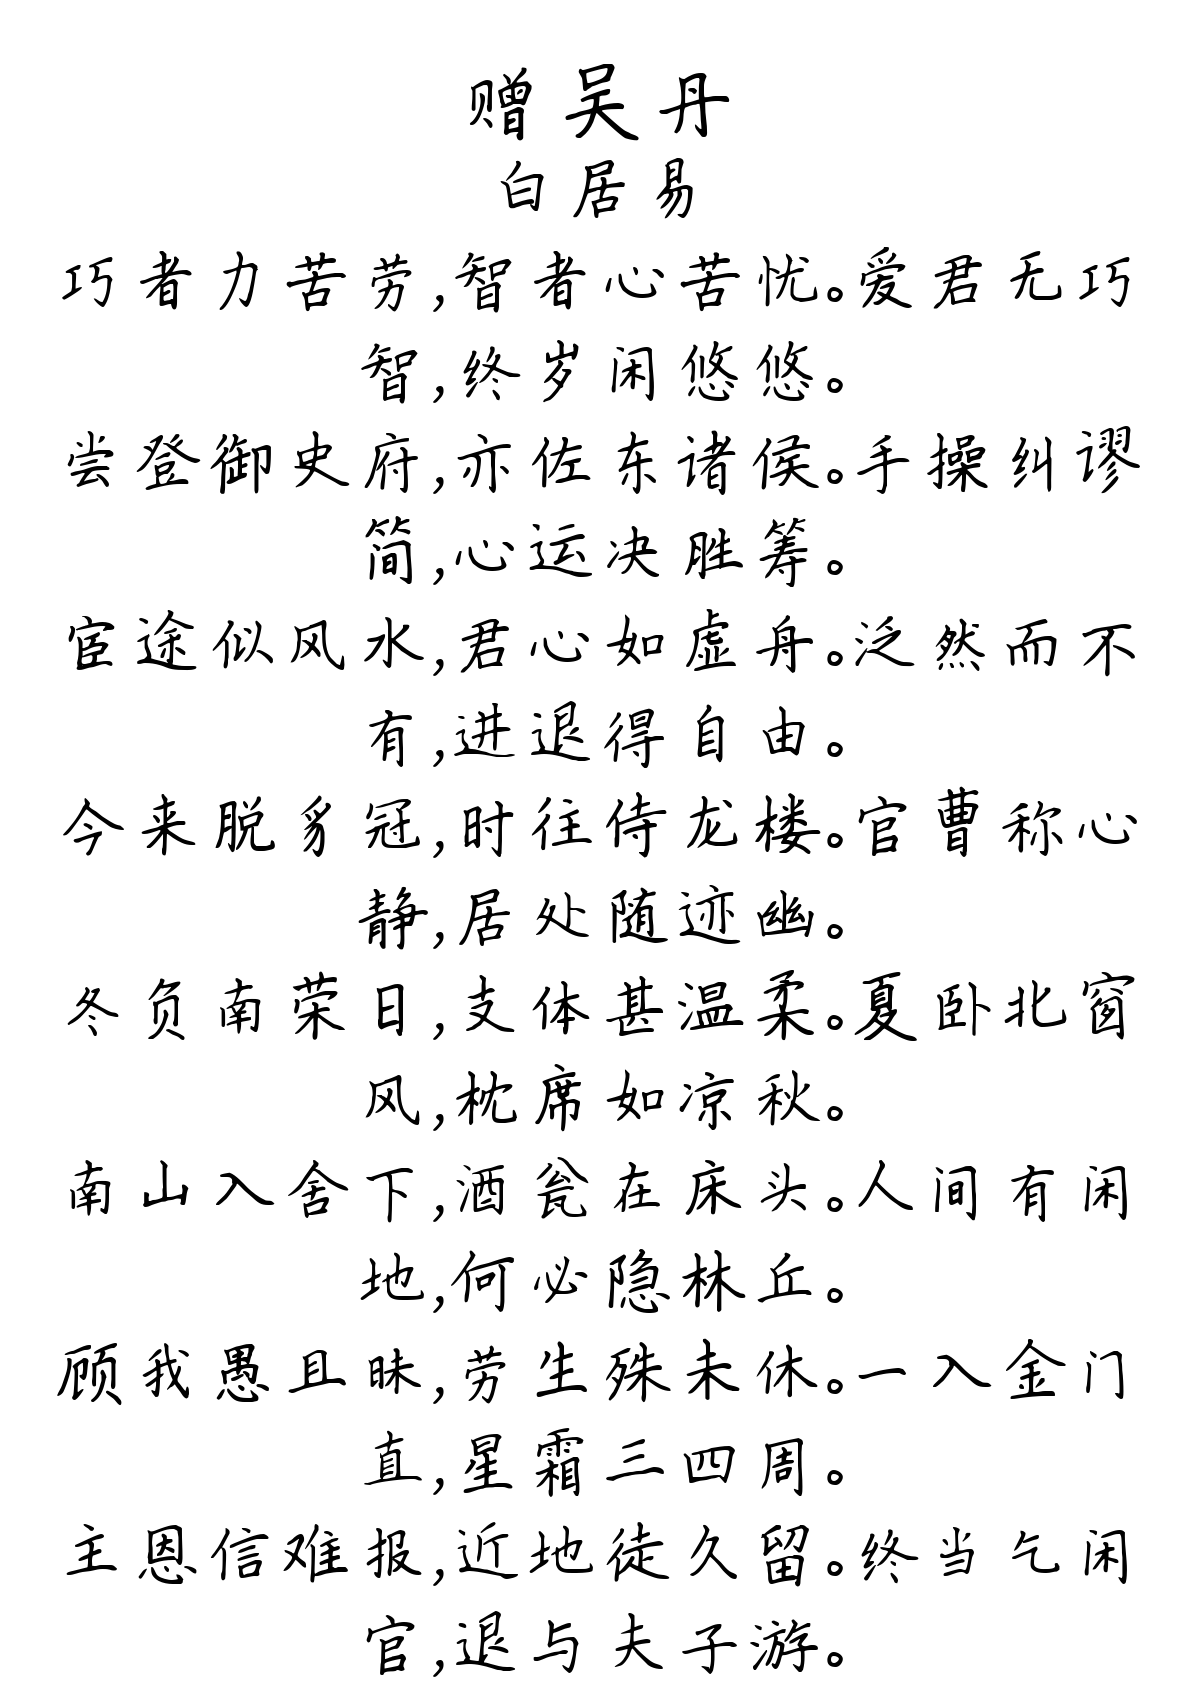 赠吴丹
白居易
巧者力苦劳,智者心苦忧。爱君无巧
智,终岁闲悠悠。
尝登御史府,亦佐东诸侯。手操纠谬
简,心运决胜筹。
宦途似风水,君心如虚舟。泛然而不
有,进退得自由。
今来脱豸冠,时往侍龙楼。官曹称心
静,居处随迹幽。
冬负南荣日,支体甚温柔。夏卧北窗
风,枕席如凉秋。
南山入舍下,酒瓮在床头。人间有闲
地,何必隐林丘。
顾我愚且昧,劳生殊未休。一入金门
直,星霜三四周。
主恩信难报,近地徒久留。终当乞闲
官,退与夫子游。